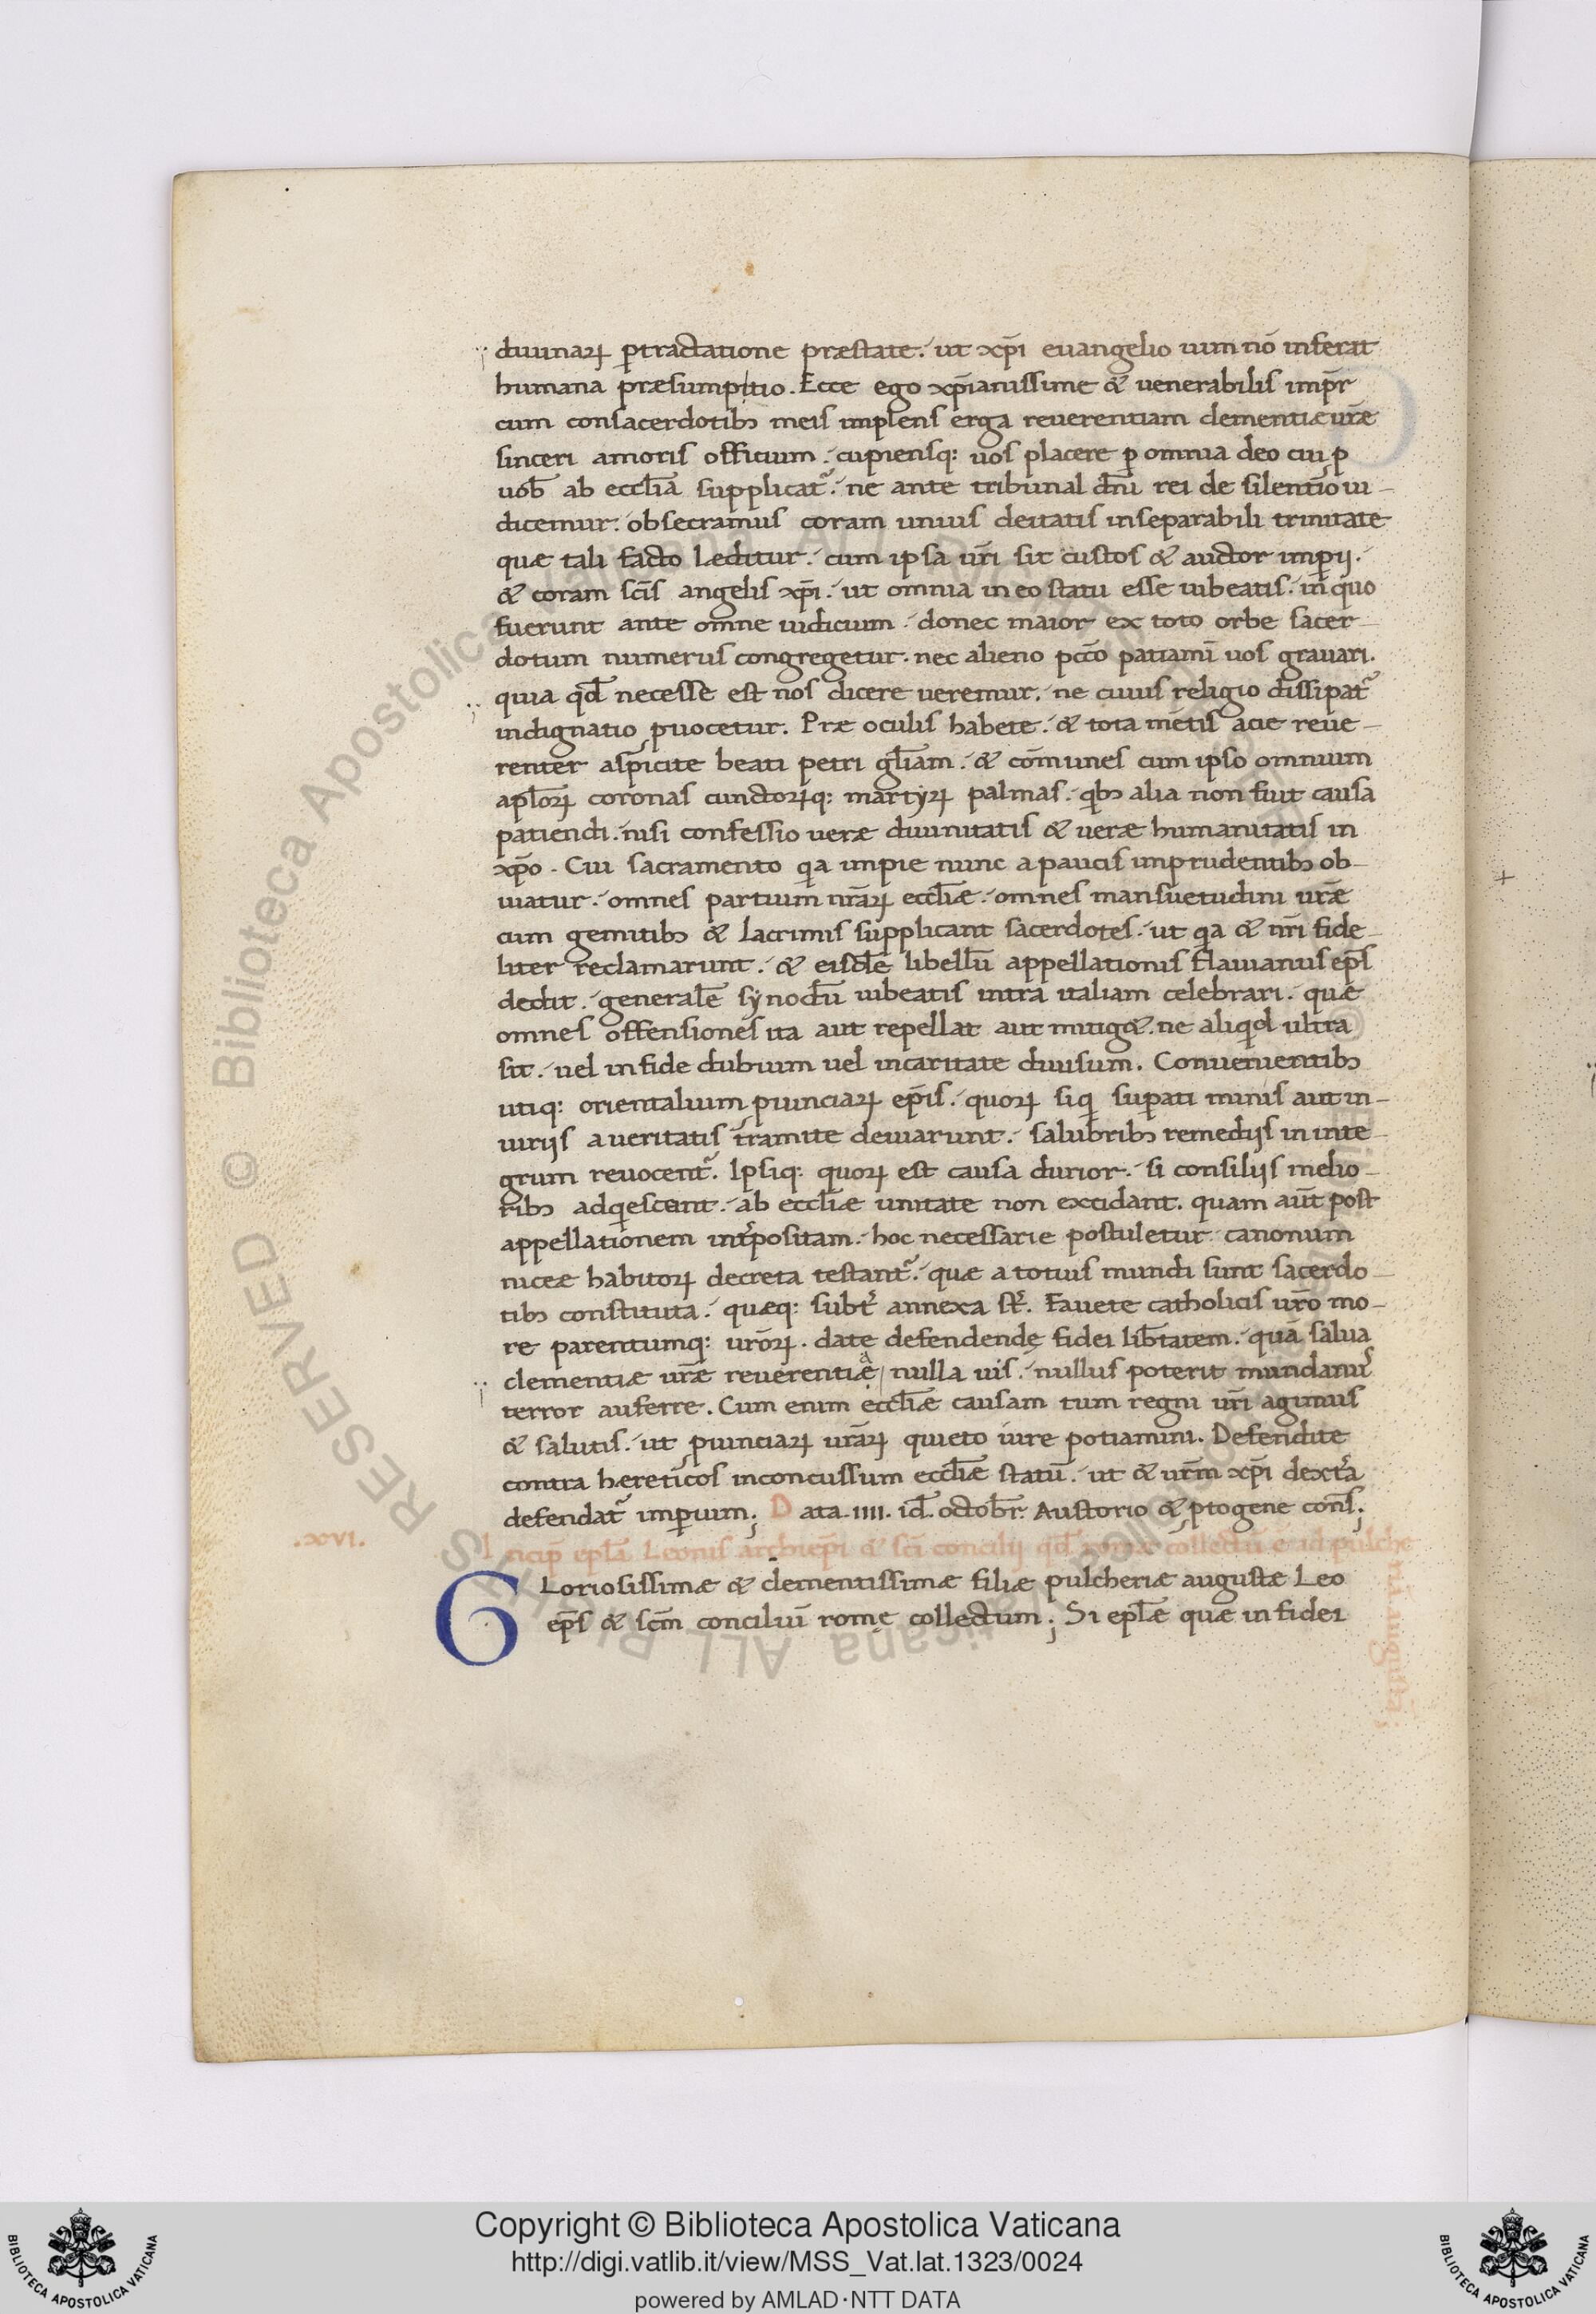 diuinaꝝ ꝑtractatione præstate. ut xp̄i euangelio uim nō inferat
humana præsumptio. Ecce ego xp̄ianissime & uenerabilis imp̄r
cum consacerdotibꝫ meis implens erga reuerentiam clementiæ ur̄æ
sinceri amoris officium. cupiensq: uos placere ꝑ omnia deo cui ꝓ
uob̄ ab eccl̄ia supplicat᷑. ne ante tribunal dn̄i rei de silentio iu-
dicemur. obsecramus coram unius deitatis inseparabili trinitate
quæ tali facto læditur. cum ipsa ur̄i sit custos & auctor imꝑij.
& coram sc̄is angelis xp̄i. ut omnia in eo statu esse iubeatis. in quo
fuerunt ante omne iudicium. donec maior ex toto orbe sacer-
dotum numerus congregetur. nec alieno pcc̄o patiamī uos grauari.
quia qd̄ necesse est nos dicere ueremur. ne cuius religio dissipat᷑
indignatio ꝓuocetur. Præ oculis habete. & tota mētis acie reue-
renter aspicite beati petri gl̄iam. & cōmunes cum ipso omnium
apl̄oꝝ coronas cunctoꝝq: martyꝝ palmas. qbꝫ alia non fuit causa
patiendi. nisi confessio ueræ diuinitatis & ueræ humanitatis in
xp̄o. Cui sacramento qa impie nunc a paucis imprudentibꝫ ob-
uiatur. omnes partium nr̄aꝝ eccl̄iæ. omnes mansuetudini ur̄æ
cum gemitibꝫ & lacrimis supplicant sacerdotes. ut qa & nr̄i fide-
liter reclamarunt. & eisdē libellū appellationis flauianus ep̄s
dedit. generalē synodū iubeatis intra italiam celebrari. quæ
omnes offensiones ita aut repellat aut mitig&. ne aliqd ultra
sit. uel in fide dubium uel in caritate diuisum. Conuenientibꝫ
utiq: orientalium ꝓuinciaꝝ ep̄is. quoꝝ siq suꝑati minis aut in-
iurijs a ueritatis tramite deuiarunt. salubribꝫ remedijs in inte-
grum reuocent᷑. Ipsiq: quoꝝ est causa durior. si consilijs melio-
ribꝫ adqiescant. ab eccl̄iæ unitate non excidant. quam aūt post
appellationem int᷑positam. hoc necessarie postuletur canonum
niceæ habitoꝝ decreta testant᷑. quæ a totius mundi sunt sacerdo-
tibꝫ constituta. quæq: subt᷑ annexa st᷑. Fauete catholicis ur̄o mo-
re parentumq: ur̄oꝝ. date defendendę fidei lib̄tatem. quā salua
clementiæ ur̄æ reuerentiæ nulla uis. nullus poterit mundanus
terror auferre. Cum enim eccl̄iæ causam tum regni ur̄i agimus
& salutis. ut ꝓuinciaꝝ ur̄aꝝ quieto iure potiamini. Defendite
contra hæreticos inconcussum eccl̄iæ statū. ut & ur̄m xp̄i dext᷑a
defendat᷑ imꝑium; Data. IIII. id̄. octob̄r. Austorio & ꝓtogene cons̄;
.XVI. Incip̄ epl̄a Leonis archiep̄i & sc̄i concilij qd̄ romæ collectū ē ad pulche
riā augustā;
Gloriosissimæ & clementissimæ filiæ pulcheriæ augustæ Leo
ep̄s & sc̄m conciliū romę collectum; Si epl̄æ quæ in fidei
Copyright © Biblioteca Apostolica Vaticana
http://digi.vatlib.it/view/MSS_Vat.lat.1323/0024
powered by AMLAD·NTT DATA